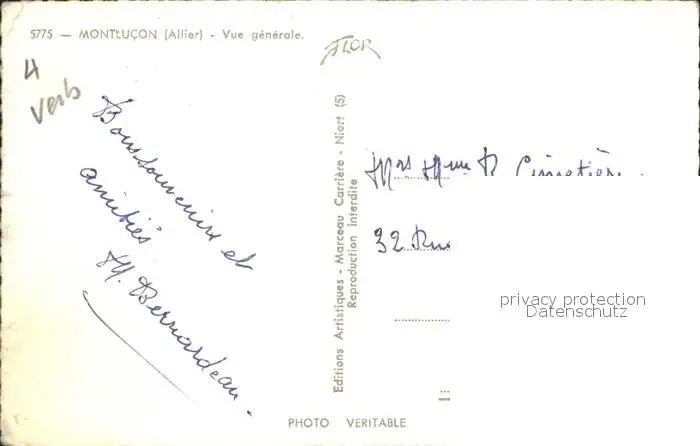 5775 — MONTLUÇON (Allier) - Vue générale.
FLOR
4
Verb
Bons souvenirs et
amitiés
M. Bernardeau.
Editions Artistiques - Marceau Carrière - Niort (5)
Reproduction interdite
Mrs Mme
32 Rue
privacy protection
Datenschutz
PHOTO VERITABLE